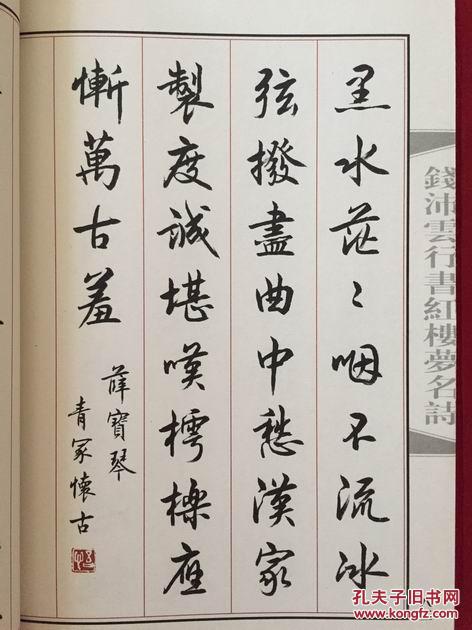 黑水茫〻咽不流冰
弦撥盡曲中愁漢家
製度誠堪嘆樗櫟應
慚萬古羞
薛寶琴
青冢懷古
錢沛雲行書紅樓夢名詩
孔夫子旧书网